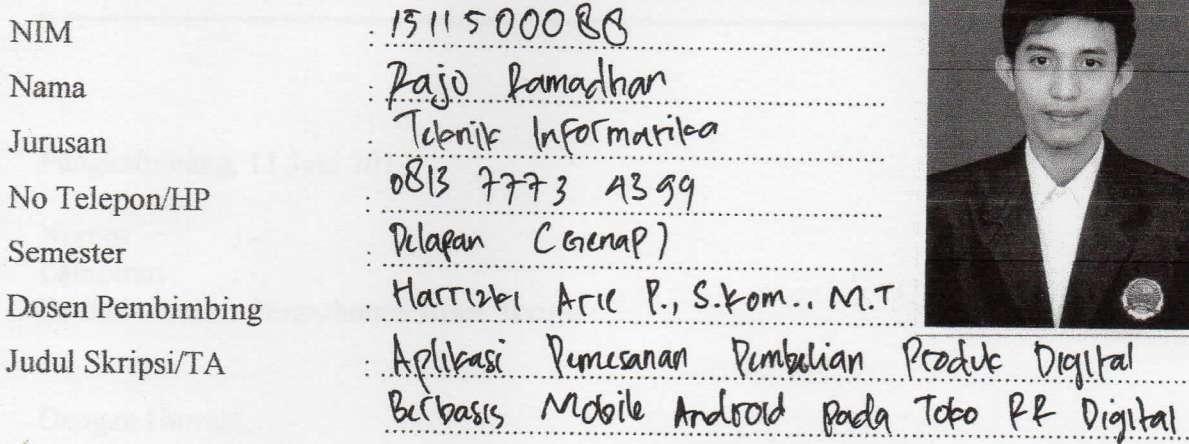 NIM : 1511500088
Nama : Rajo Ramadhan
Jurusan : Teknik Informatika
No Telepon/HP : 0813 7773 4399
Semester : Delapan (Genap)
Dosen Pembimbing : Harrizki Arie P., S.Kom., M.T
Judul Skripsi/TA : Aplikasi Pemesanan Pembelian Produk Digital
Berbasis Mobile Android pada Toko RR Digital